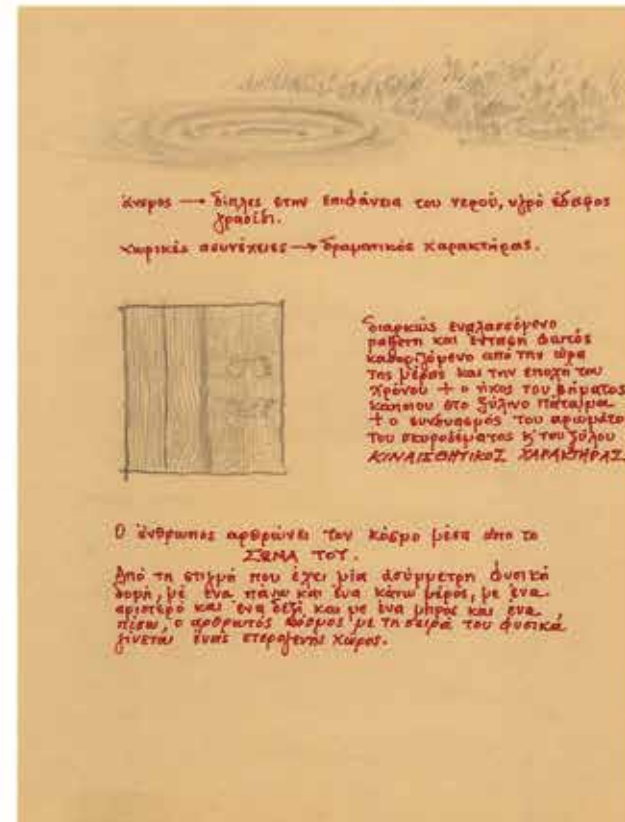 άνεμος → δίπλες στην επιφάνεια του νερού, υγρό έδαφος
γρασίδι.
χωρικές ασυνέχειες → δραματικός χαρακτήρας.
διαρκώς εναλασσόμενο
και ένταση φωτός
καθοριζόμενο από την ώρα
της μέρας και την εποχή του
χρόνου + ο ήχος του βήματος
κάποιου στο ξύλινο πάτωμα
+ ο συνδυασμός του αρωμάτο
του σκυροδέματος κ του ξύλου
ΚΙΝΑΙΣΘΗΤΙΚΟΣ ΧΑΡΑΚΤΗΡΑΣ.
Ο άνθρωπος αρθρώνει τον κόσμο μέσα απο το
ΣΩΜΑ ΤΟΥ.
Από τη στιγμή που έχει μία ασύμμετρη φυσική
δομή, με ένα πάνω και ένα κάτω μέρος, με ένα
αριστερό και ένα δεξί, και με ένα μπρος και ένα
πίσω, ο αρθρωτός κόσμος με τη σειρά του φυσικά
γίνεται ένας ετερογενής χώρος.